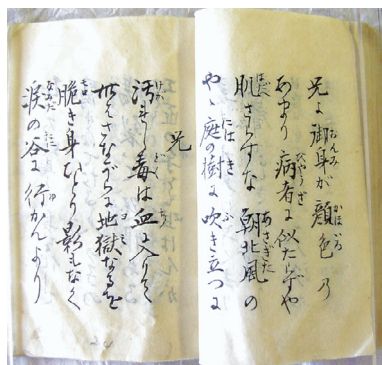 兄よ御身が顔色の
あまり病者に似たらずや
肌さらすな朝北風の
やゝ庭の樹に吹き立つに
兄
汚れし毒は血に入りて
世はさながらに地獄なるを
脆き身ひとり影もなく
涙の谷に行かんより